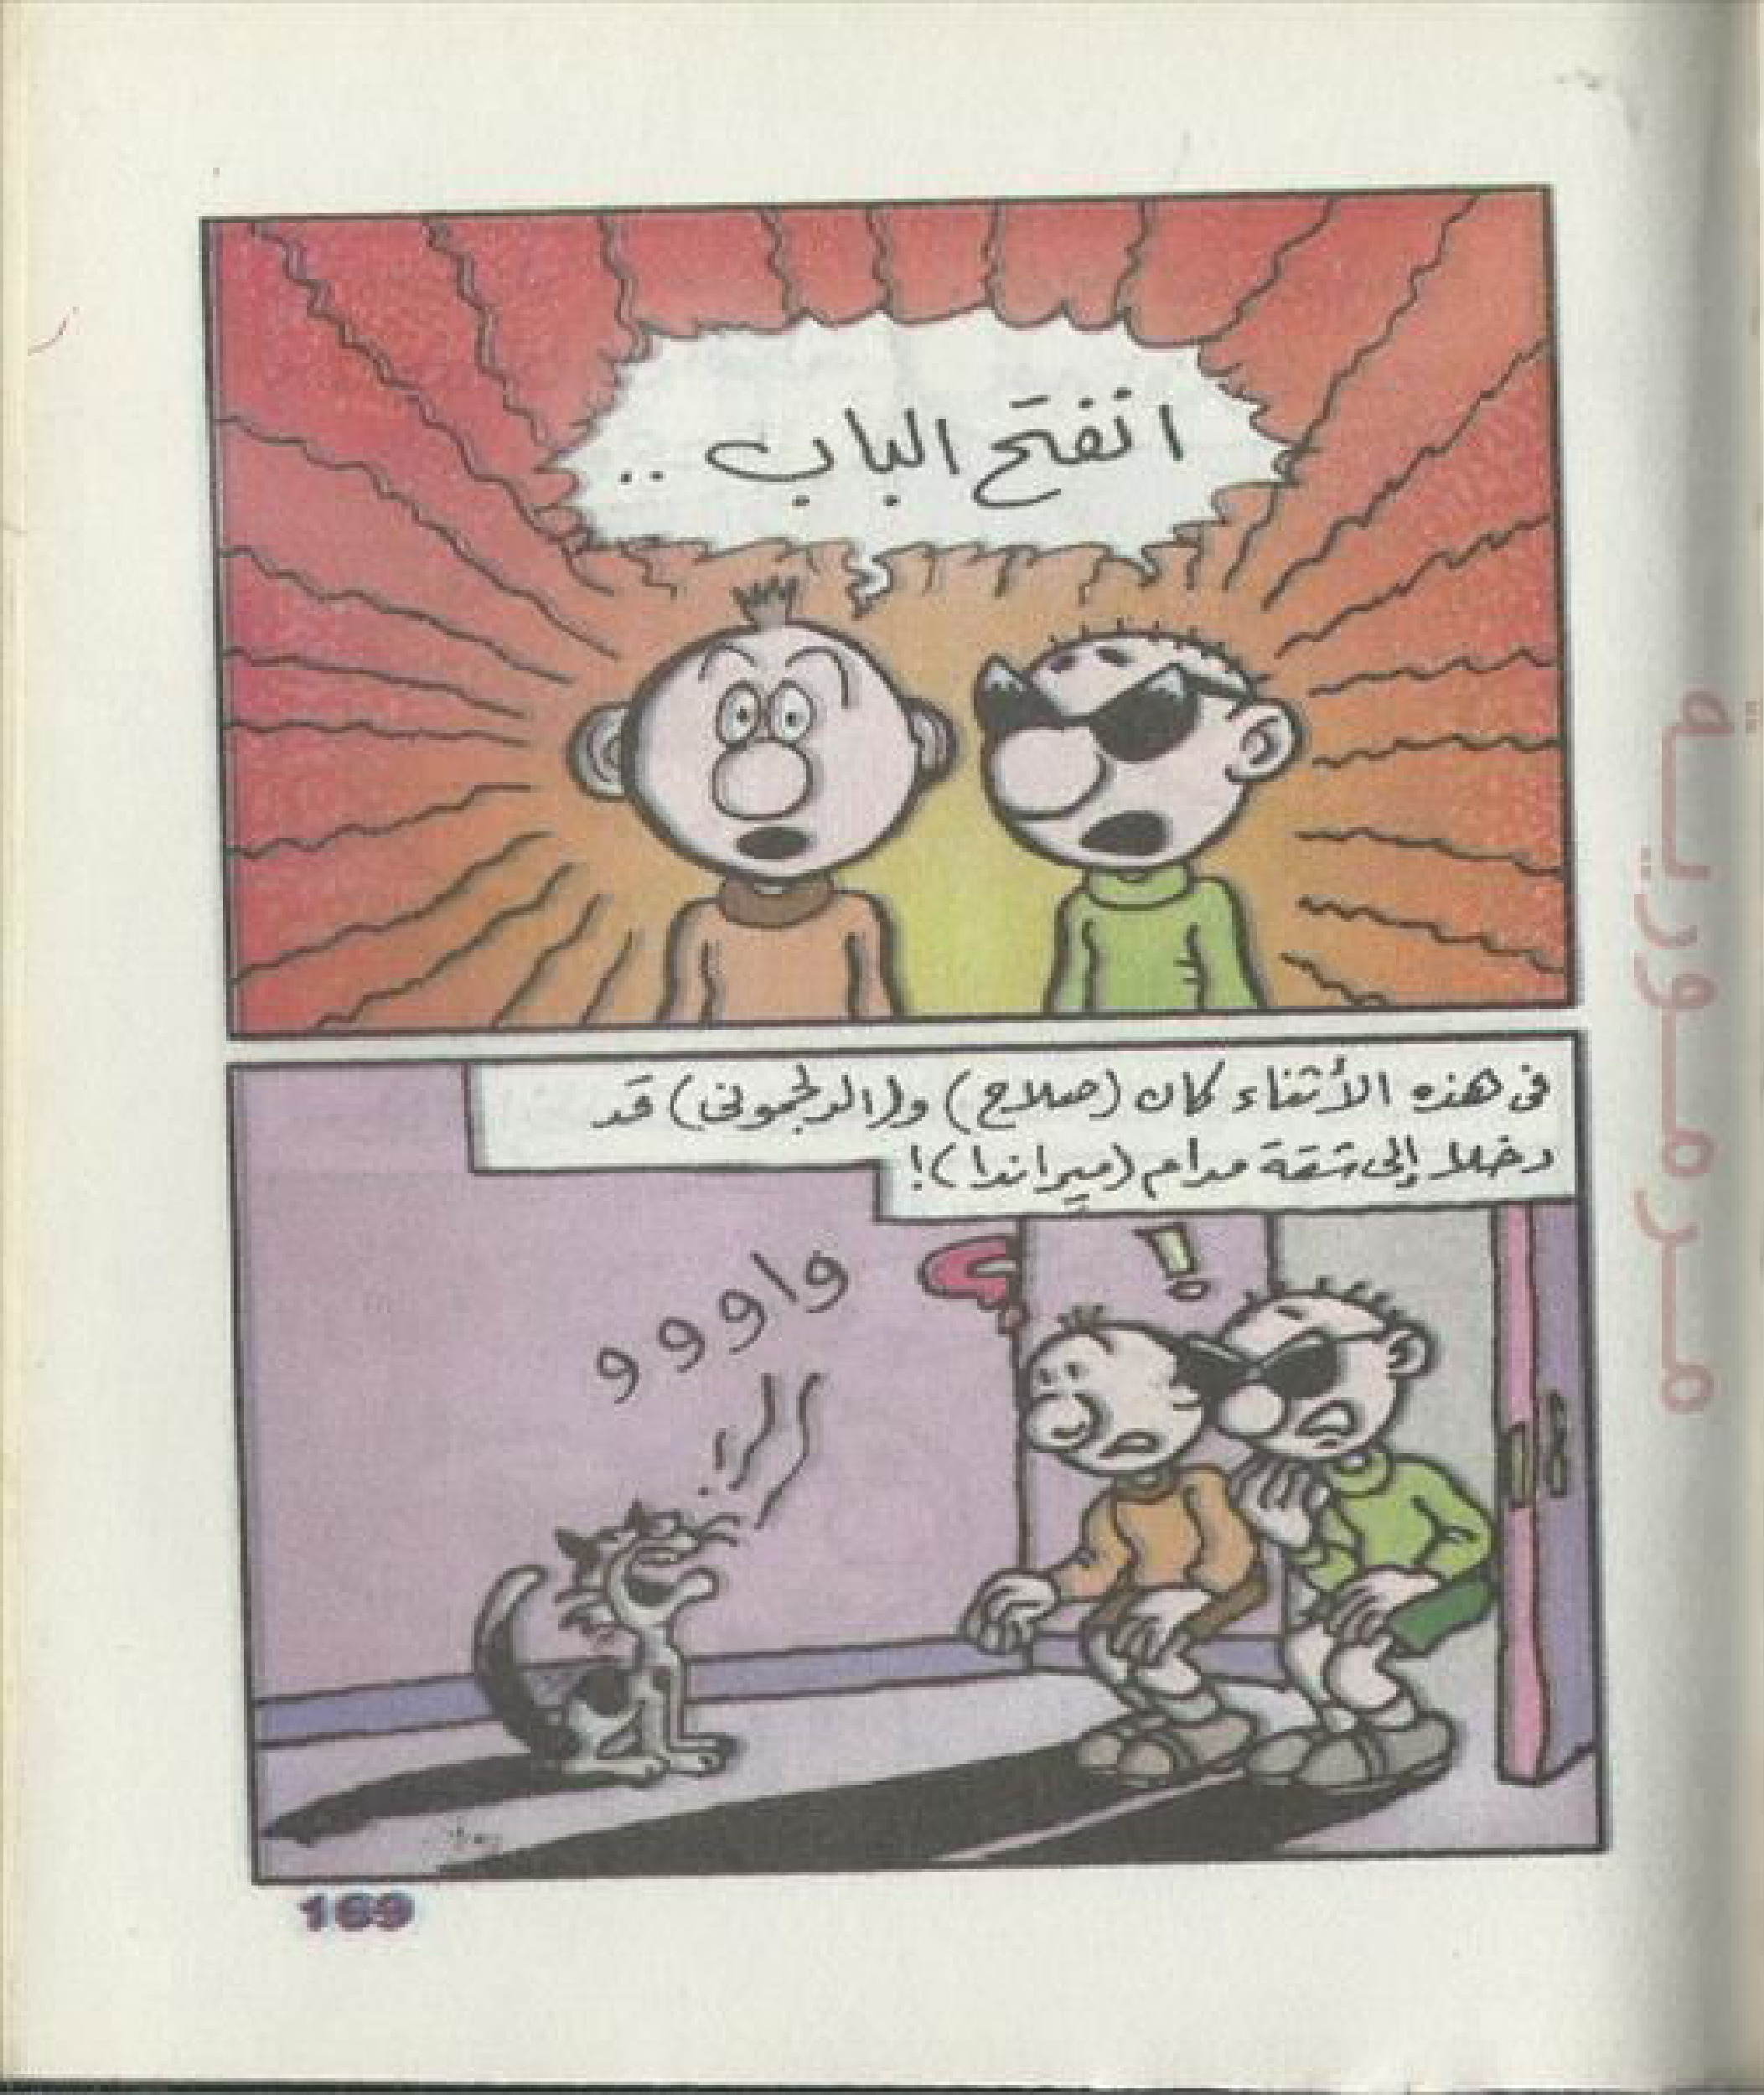 اتفتح الباب ..
فى هذه الأثناء كان (صلاح) و(الدلجمونى) قد
دخلا إلى شقة مدام (ميراندا)!
واووو
!
؟
169